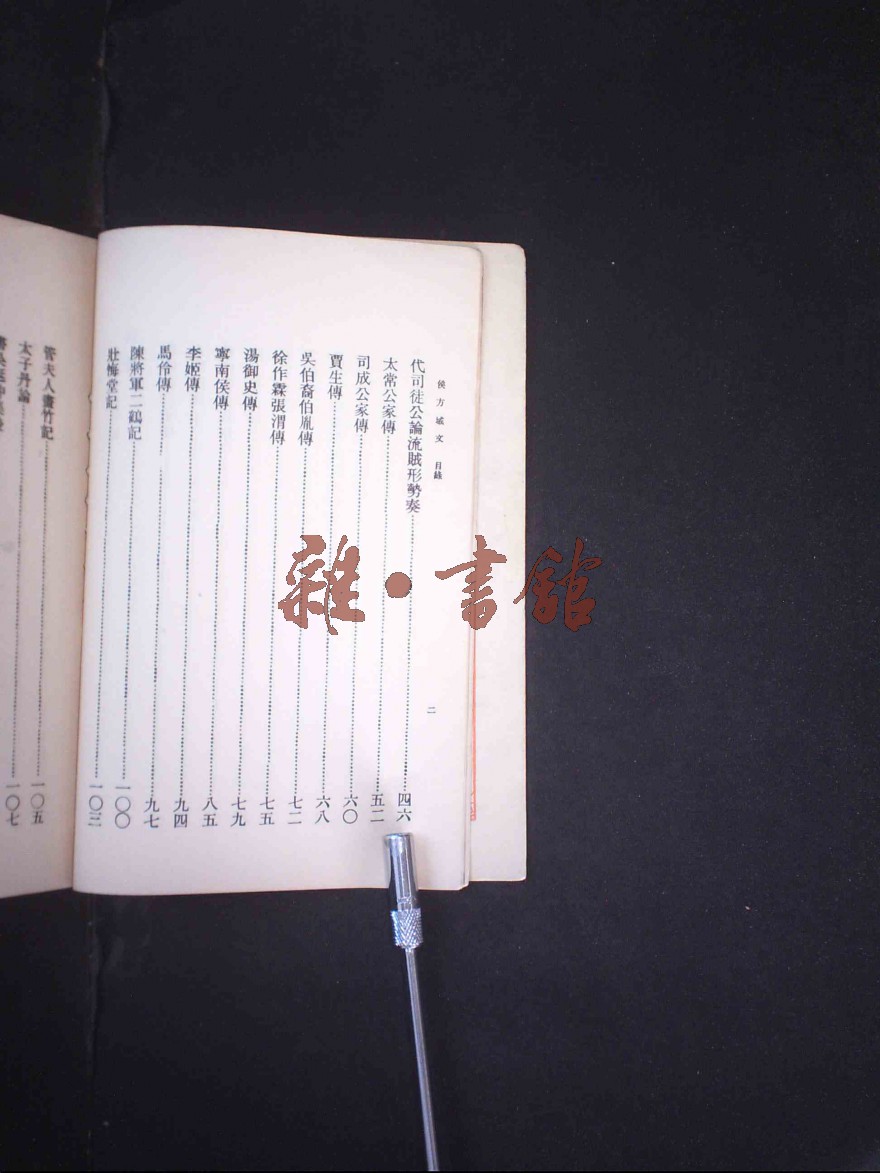 侯方域文 目錄
二
代司徒公論流賊形勢奏 四六
太常公家傳 五二
司成公家傳 六〇
賈生傳 六八
吳伯裔伯胤傳 七二
徐作霖張渭傳 七五
湯御史傳 七九
寧南侯傳 八五
李姬傳 九四
馬伶傳 九七
陳將軍二鶴記 一〇〇
壯悔堂記 一〇三
管夫人畫竹記 一〇五
太子丹論 一〇七
雜·書館